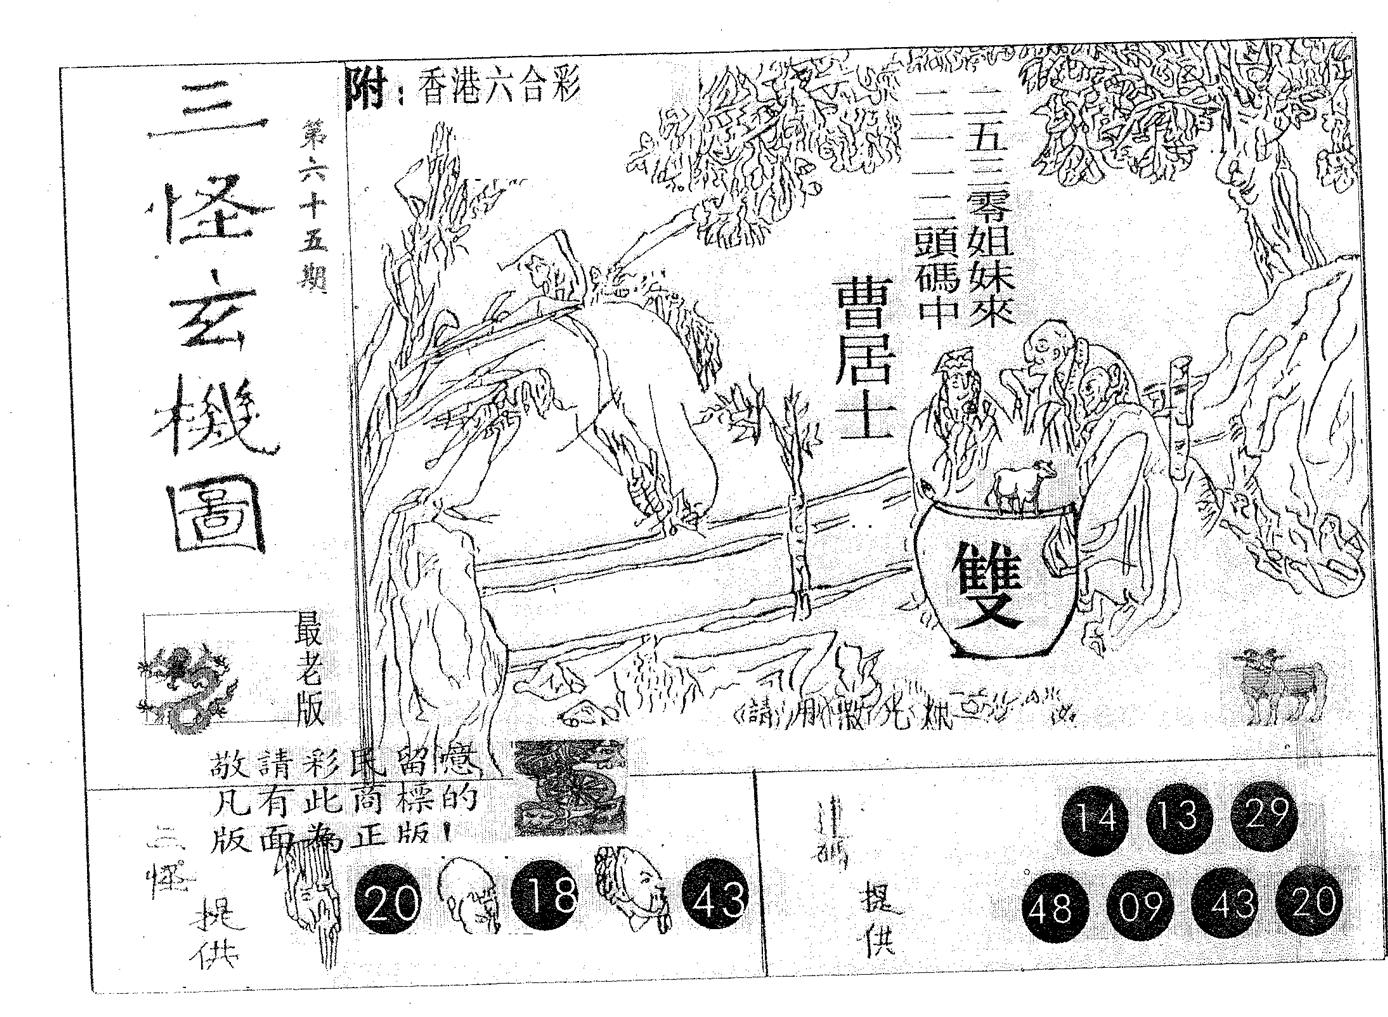 三怪玄機圖
第六十五期
最老版
附：香港六合彩
二五三零姐妹來
二一一二頭碼中
曹居士
雙
敬請彩民留意
凡有此商標的
版面為正版！
三怪
提供
20 18 43
提供
14 13 29
48 09 43 20